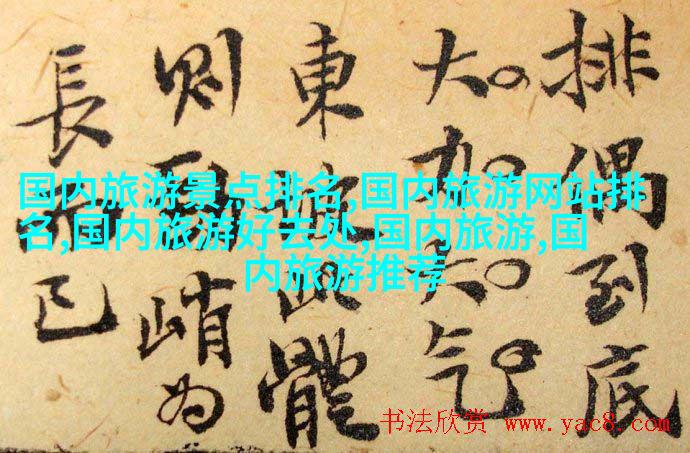 排偶到底
大大气
東坡此體
則峭為
長已
国内旅游景点排名,国内旅游网站排
名,国内旅游好去处,国内旅游,国
内旅游推荐
书法欣赏 www.yac8.com